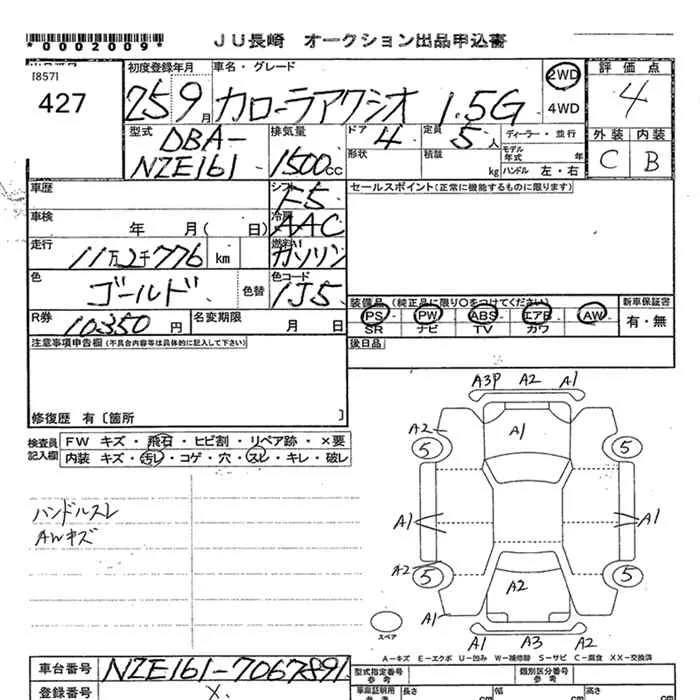 *0002009*
JU長崎 オークション出品申込書
[857]
427
初度登録年月
25 9月
車名・グレード
カローラアクシオ 1.5G
2WD
4WD
評価点
4
外装 内装
C B
型式
DBA-
NZE161
排気量
1500cc
ドア
4
定員
5人
ディーラー・並行
形状
積載
kg
モデル年式 年
ハンドル 左・右
車歴
シフト
F5
セールスポイント(正常に機能するものに限ります)
車検
年 月( 日)
冷房
AAC
走行
11万2千776 km
燃料
ガソリン
色
ゴールド
色替
色コード
1J5
装備品(純正品に限り○をつけてください)
新車保証書
PS PW ABS エアB AW
SR ナビ TV カワ
有・無
R券
10350円
名変期限
月 日
後日品
注意事項申告欄(不具合内容等は具体的に記入して下さい)
修復歴 有[箇所 ]
検査員記入欄
FW キズ・飛石・ヒビ割・リペア跡・×要
内装 キズ・汚レ・コゲ・穴・スレ・キレ・破レ
ハンドルスレ
AWキズ
A3P A2 A1
A2
A1
5 5
A1 A1
A2
5 5
A2
A1
スペア
A1 A3 A2
A-キズ E-エクボ U-凹み W-補修跡 S-サビ C-腐食 XX-交換済
車台番号
NZE161-7067891
型式指定番号
参考
類別区分番号
参考
登録番号
車庫証明用
参考
長さ
cm
幅
cm
高さ
cm